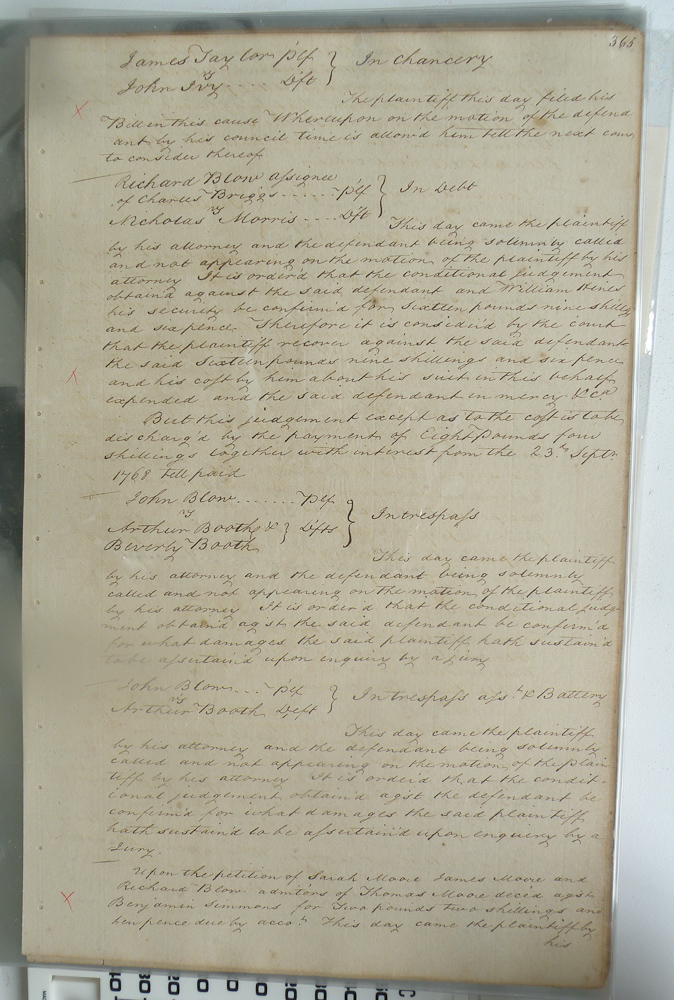 365
James Taylor Plf } In chancery
vs
John Ivy .... Dft
The plaintiff this day filed his
Bill in this cause Whereupon on the motion of the defend
ant by his council time is allow'd him till the next cour
to consider thereof
Richard Blow assignee
of Charles Briggs ...... Plf } In Debt
vs
Nicholas Morris .... Dft
This day came the plaintiff
by his attorney and the defendant being solemnly called
and not appearing on the motion of the plaintiff by his
attorney It is order'd that the conditional judgement
obtain'd against the said defendant and William Hines
his security be confirm'd for sixteen pounds nine shilli
and six pence Therefore it is consider'd by the court
that the plaintiff recover against the said defendant
the said Sixteen pounds nine shillings and six pence
and his costs by him about his suit in this behalf
expended and the said defendant in mercy &ca
But this judgement except as to the costs is to be
discharg'd by the payment of Eight Pounds four
shillings together with interest from the 23d Septr
1768 till paid
John Blow ....... Plf
vs
Arthur Booth & } Dfts } In trespass
Beverly Booth
This day came the plaintiff
by his attorney and the defendant being solemnly
called and not appearing on the motion of the plaintiff
by his attorney It is order'd that the conditional judge
ment obtain'd agst the said defendant be confirm'd
for what damages the said plaintiff hath sustain'd
to be assertain'd upon enquiry by a jury
John Blow ... Plf } In trespass asst & Battery
vs
Arthur Booth Deft
This day came the plaintiff
by his attorney and the defendant being solemnly
called and not appearing on the motion of the plain
tiff by his attorney It is order'd that the condit-
ional judgement obtain'd agst the defendant be
confirm'd for what damages the said plaintiff
hath sustain'd to be assertain'd upon enquiry by a
Jury.
Upon the petition of Sarah Moore James Moore and
Richard Blow admtors of Thomas Moore dec'd agst
Benjamin Simmons for Two pounds two shillings and
pence due by acct This day came the plaintiff by
his